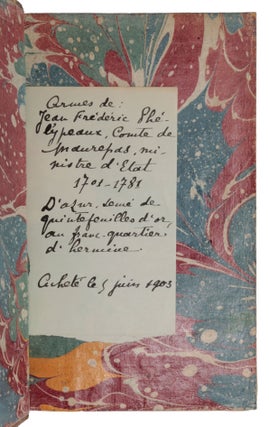 Armes de:
Jean Frédéric Phé-
lypeaux, Comte de
Maurepas, mi-
nistre d'Etat
1701-1781
D'azur, semé de
quintefeuilles d'or,
au franc-quartier
d'hermine
Acheté le 5 juin 1903